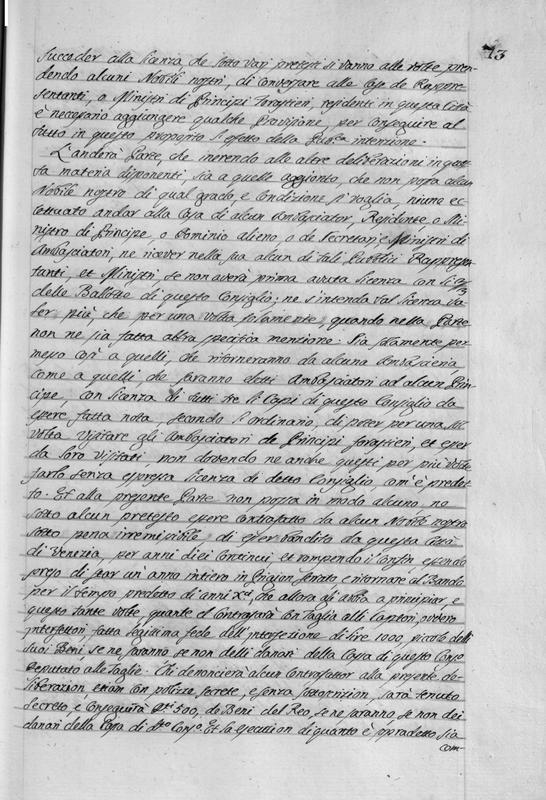 73
succeder alla licenza, che sotto varj pretesti si vanno alle volte pren-
dendo alcuni Nobili nostri, di conversare alle Case de Rappre-
sentanti, o Ministri de Principi forastieri, residenti in questa Città
è necessario aggiungere qualche Provisione, per conseguire al
tutto in questo proposito l'effetto della Pub.ca intenzione.
L'anderà Parte, che inerendo alle altre deliberazioni in ques-
ta materia disponenti sia a quelle aggionto, che non possa alcun
Nobile nostro di qual grado, e condizione si voglia, niuno ec-
cettuato andar alla Casa di alcun Ambasciator, Residente o Mi-
nistro di Principe, o Dominio alieno, o de Secretarj e Ministri di
Ambasciatori, ne ricever nella sua alcun di tali Pubblici Rappresen-
tanti, et Ministri, se non averà prima avuta licenza con li
delle Ballotte di questo Consiglio; ne s'intenda tal licenza va-
ler più, che per una volta solamente, quando nella Parte
non ne sia fatta altra specifica mentione. Sia solamente per-
messo così a quelli, che ritorneranno da alcuna Ambascieria,
come a quelli che saranno eletti Ambasciatori ad alcun Prin-
cipe, con licenza di tutti tre li Capi di questo Consiglio da
essere fatta nota, secondo l'ordinario, di poter per una sol
volta visitare gli Ambasciatori de Principi forastieri, et esser
da loro visitati, non dovendo ne anche questi per più volte
farlo senza espressa licenza di detto Consiglio, com'è predet-
to. Et alla presente Parte non possa in modo alcuno, ne
sotto alcun pretesto essere contrafatto da alcun Nobile nostro
sotto pena irremissibile di esser bandito da questa Città
di Venezia, per anni dieci continui, et rompendo il confin, essendo
preso di star un'anno intiero in Prigion serrato, e ritornare al Bando
per il tempo predetto di anni X.ci, che allora gli abbia a principiar, e
questo tante volte, quante el contrafarà con Taglia alli Captori, ovvero
Interfettori, fatta legitima fede dell'interfezione di lire 1000, piccole delli
suoi Beni, se ne saranno, se non delli danari della Cassa di questo Cons.o
deputato alle Taglie. Chi denoncierà alcun Contrafattor alla presente de-
liberazion, etiam con polizze secrete, e senza sottoscrizion, sarà tenuto
secreto, e conseguirà 500, de Beni del Reo, se ne saranno, se non dei
danari della Cassa di d.to Cons.o Et la essecution di quanto è sopradetto sia
com-